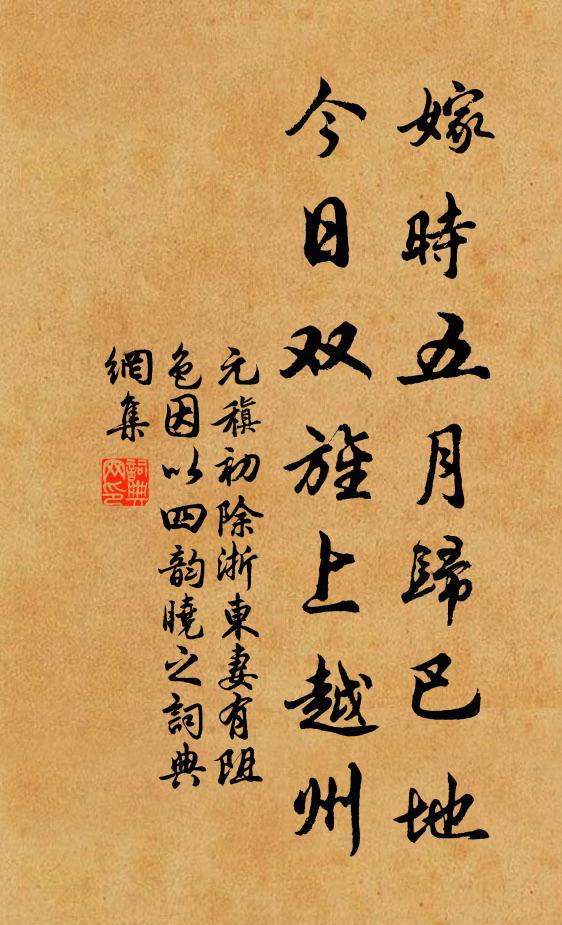 嫁時五月歸巴地
今日双旌上越州
元稹初除浙東妻有阻
色因以四韵曉之詞典
網集
詞典
网印